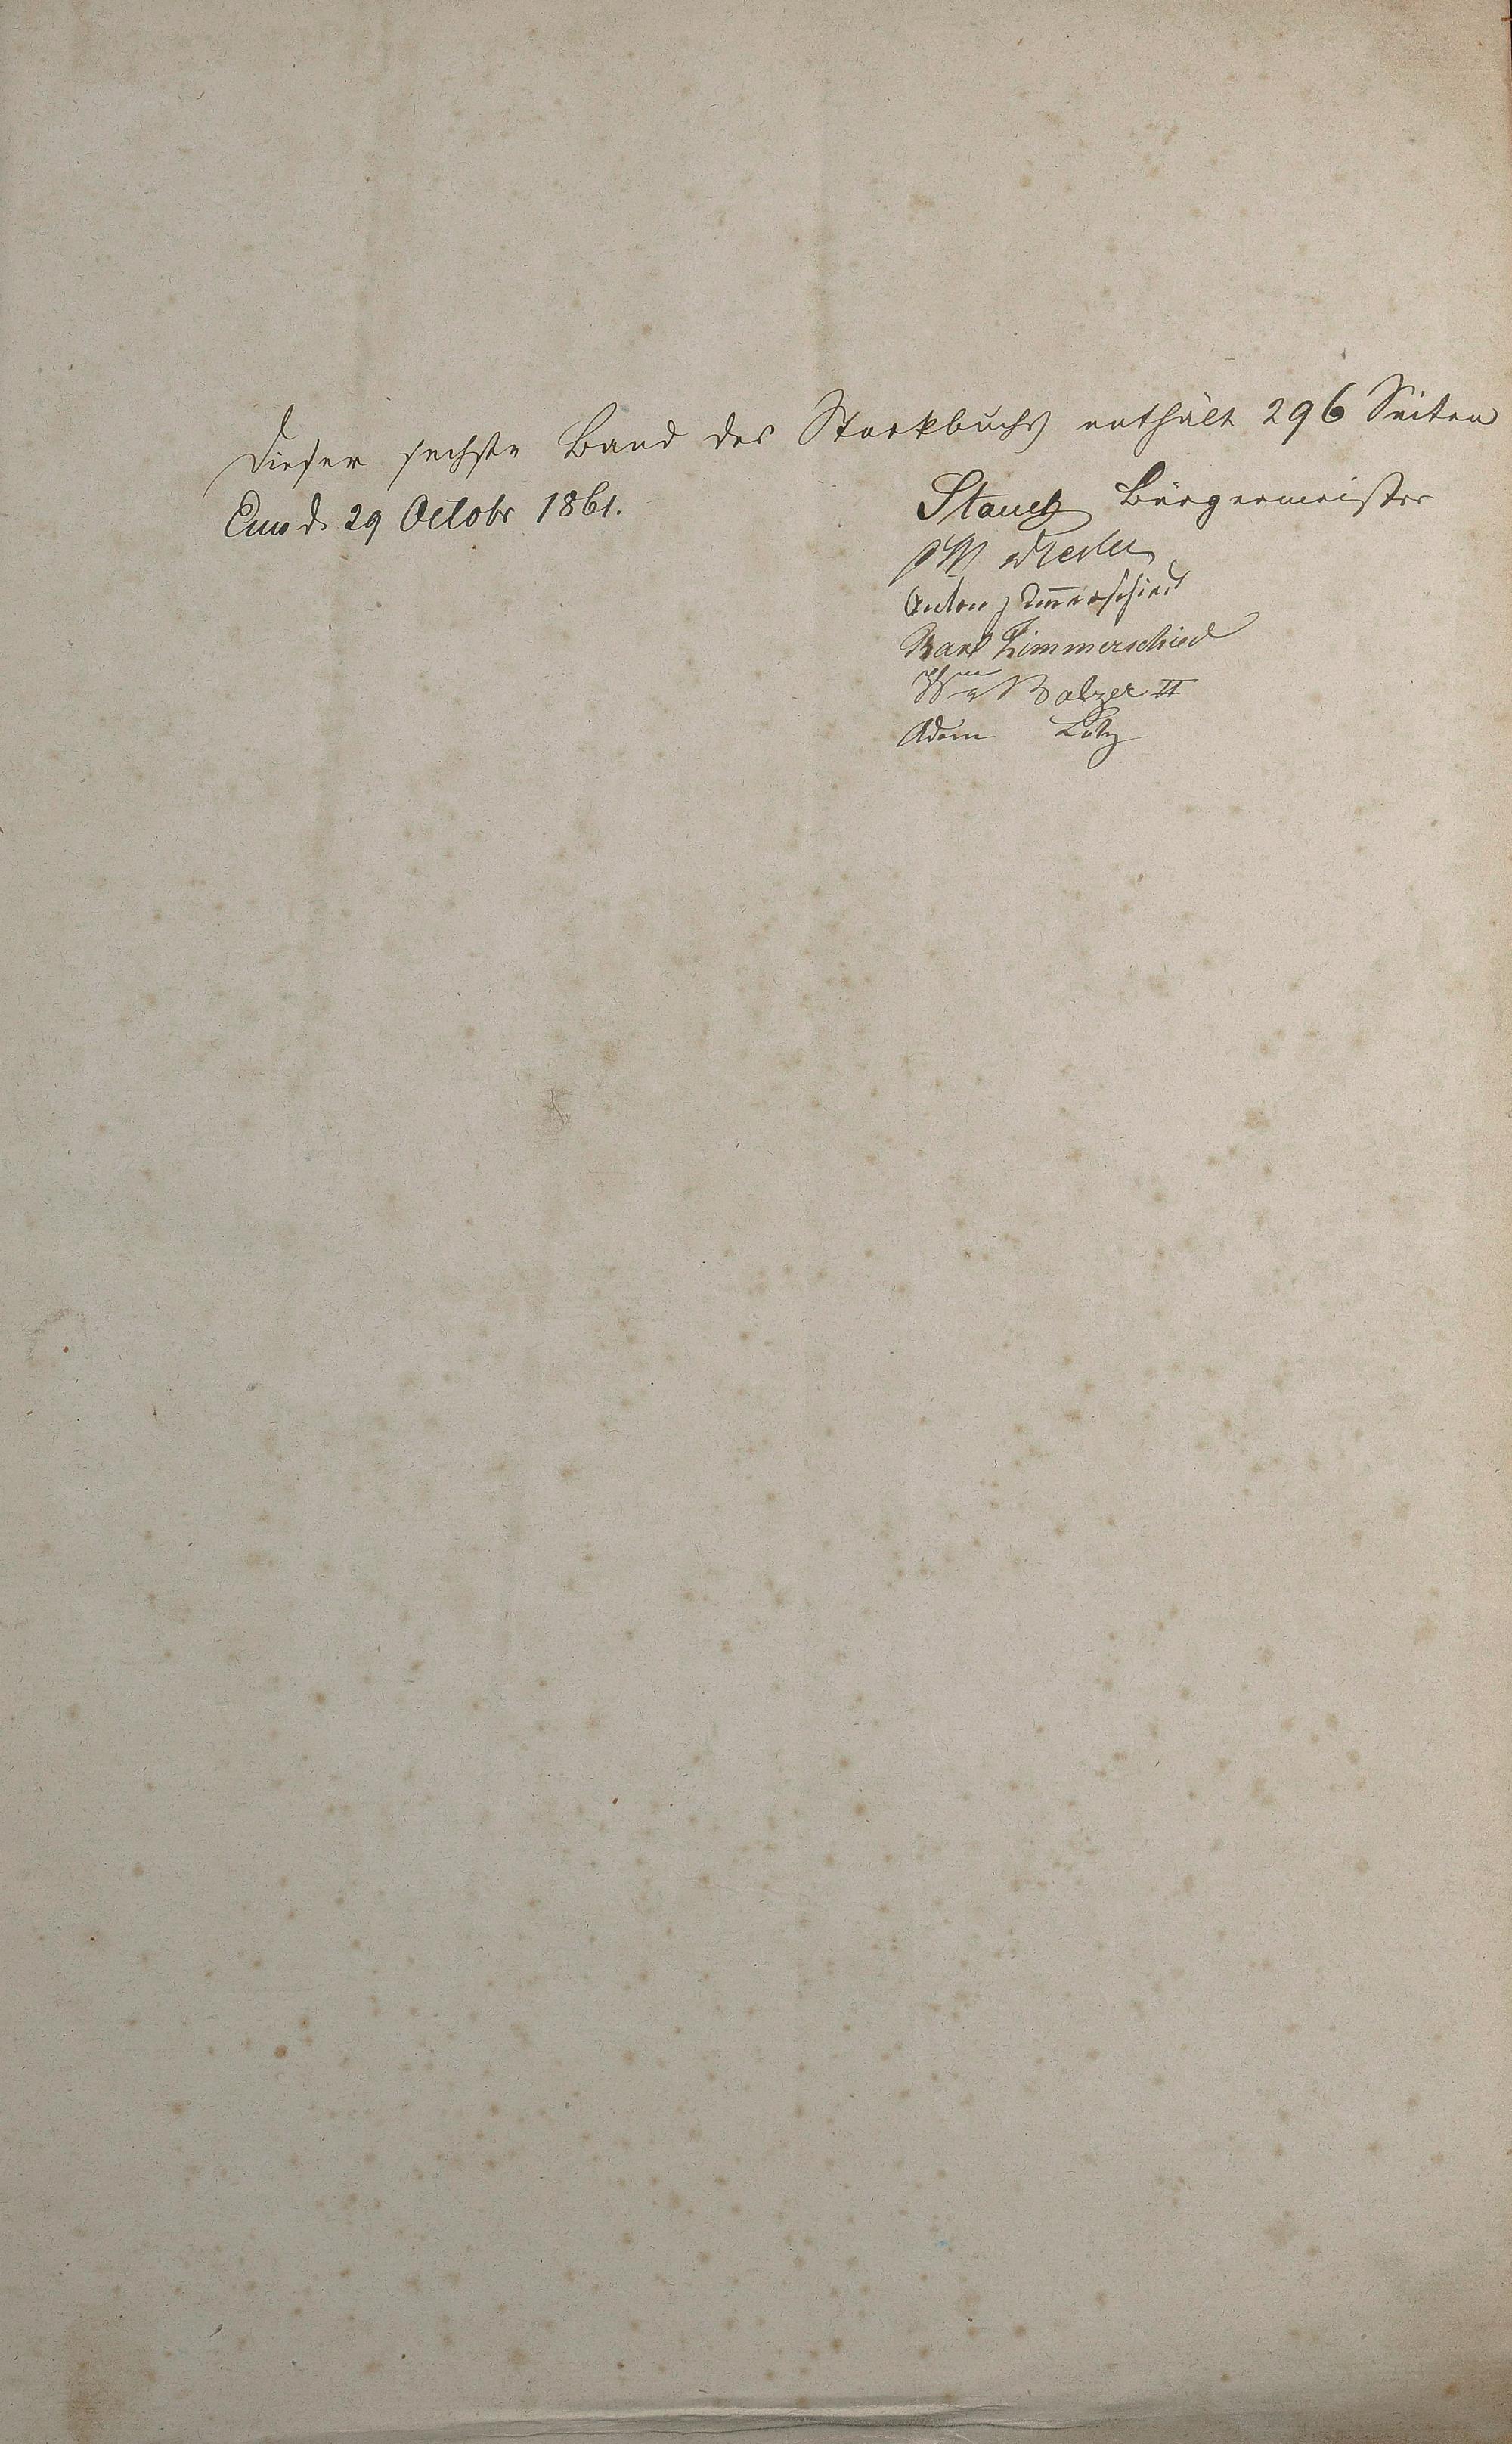 Dieser sechste Band des Stockbuchs enthält 296 Seiten
Ems d. 29 Octobr 1861.
Stauch Bürgermeister
Anton Zimmerschied
Karl Zimmerschied
Balzer II
Adam Lotz